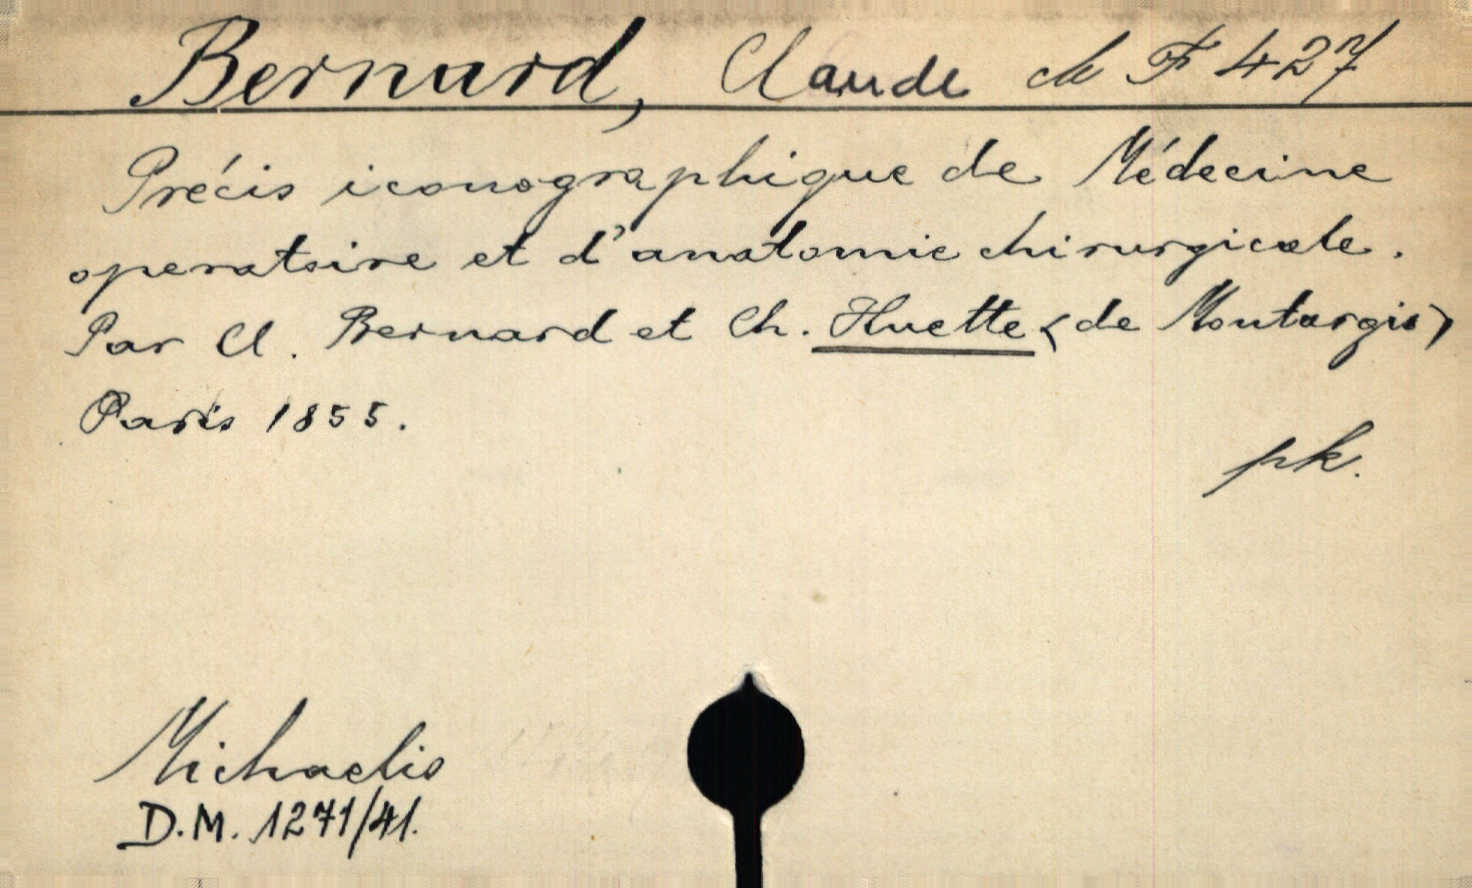 Bernard, Claude ch F 427
Précis iconographique de Médecine
operatoire et d'anatomie chirurgicale.
Par Cl. Bernard et Ch. Huette <de Montargis>
Paris 1855.
pk.
Michaelis
D.M. 1271/41.